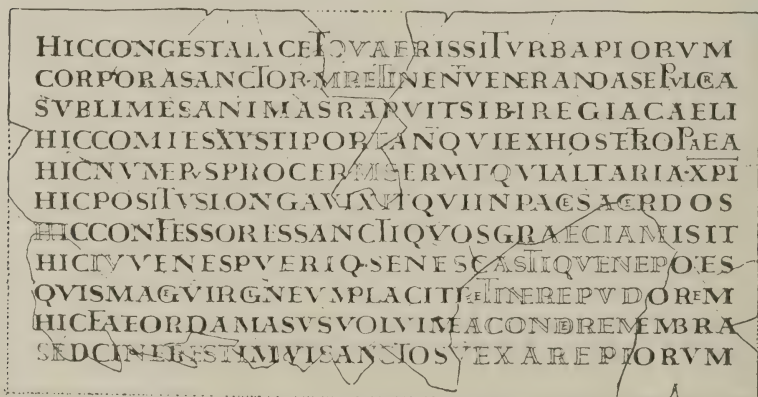 HICCONGESTAIACETQVAERISSITVRBAPIORVM
CORPORASANCTOR·MRETINENTVENERANDASEPVLCRA
SVBLIMESANIMASRAPVITSIBIREGIACAELI
HICCOMITESXYSTIPORTANTQVIEXHOSTETROPAEA
HICNVMERVSPROCERVMSERVATQVIALTARIA·XPI
HICPOSITVSLONGAVIXITQVIINPACESACERDOS
HICCONFESSORESSANCTIQVOSGRAECIAMISIT
HICIVVENESPVERIQ·SENESCASTIQVENEPOTES
QVISMAGEVIRGINEVMPLACVITRETINEREPVDOREM
HICFATEORDAMASVSVOLVIMEACONDEREMEMBRA
SEDCINERESTIMVISANCTOSVEXAREPIORVM